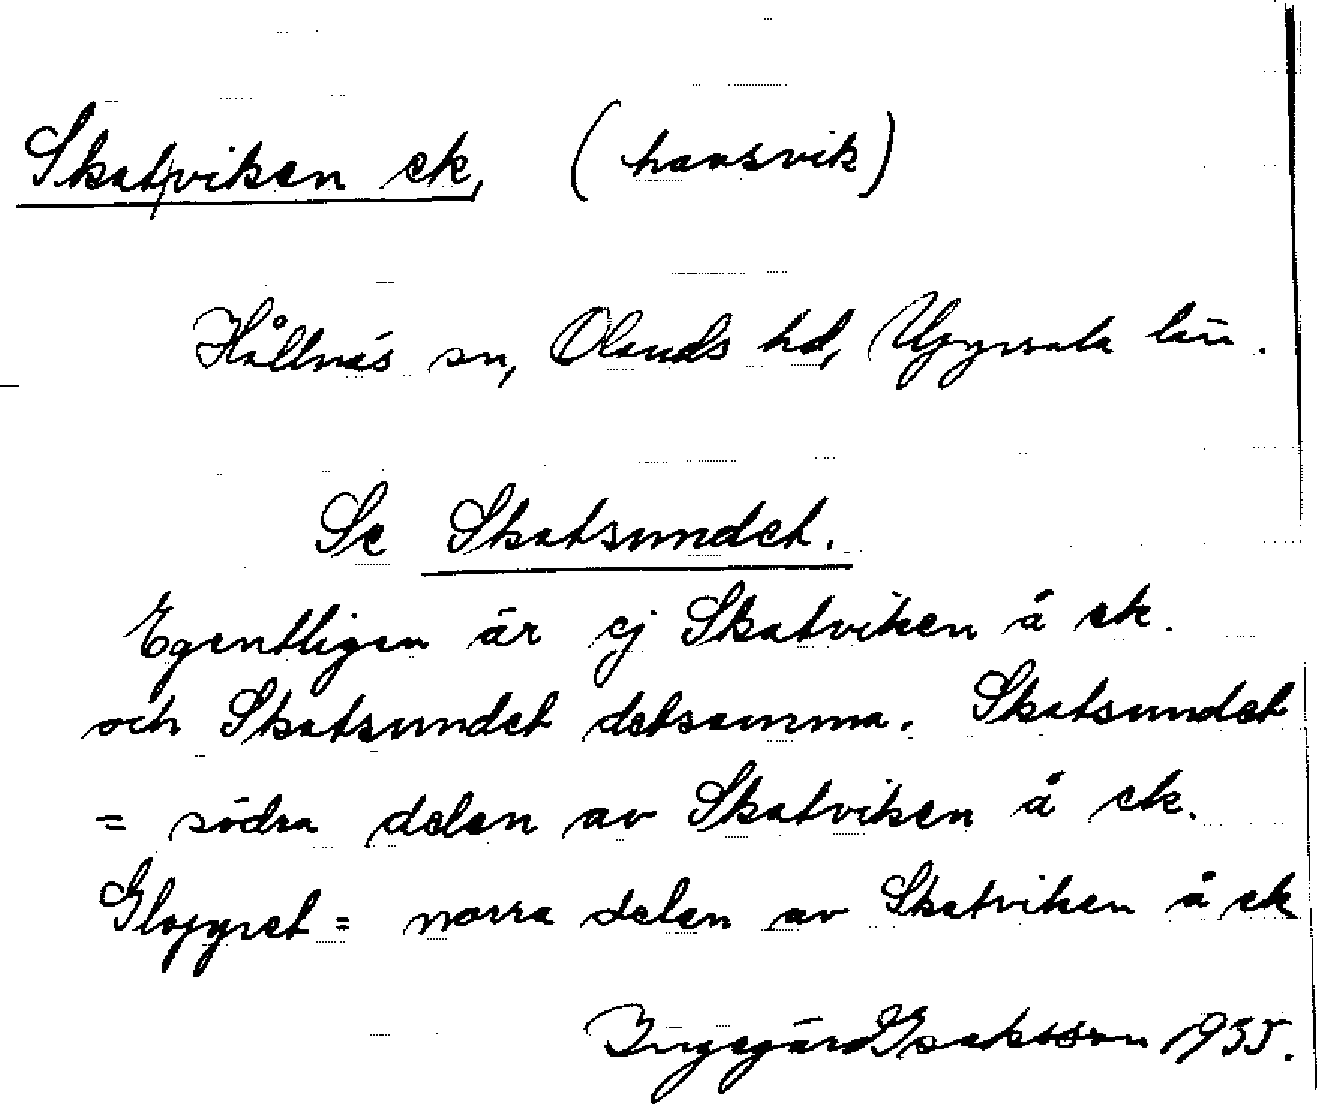 Skatviken ek, (havsvik)
Hållnäs sn, Olands hd, Uppsala län.
Se Skatsundet.
Egentligen är ej Skatviken å ek.
och Skatsundet detsamma. Skatsundet
= södra delen av Skatviken å ek.
Gloppret = norra delen av Skatviken å ek
Ingegärd Isaksson 1935.